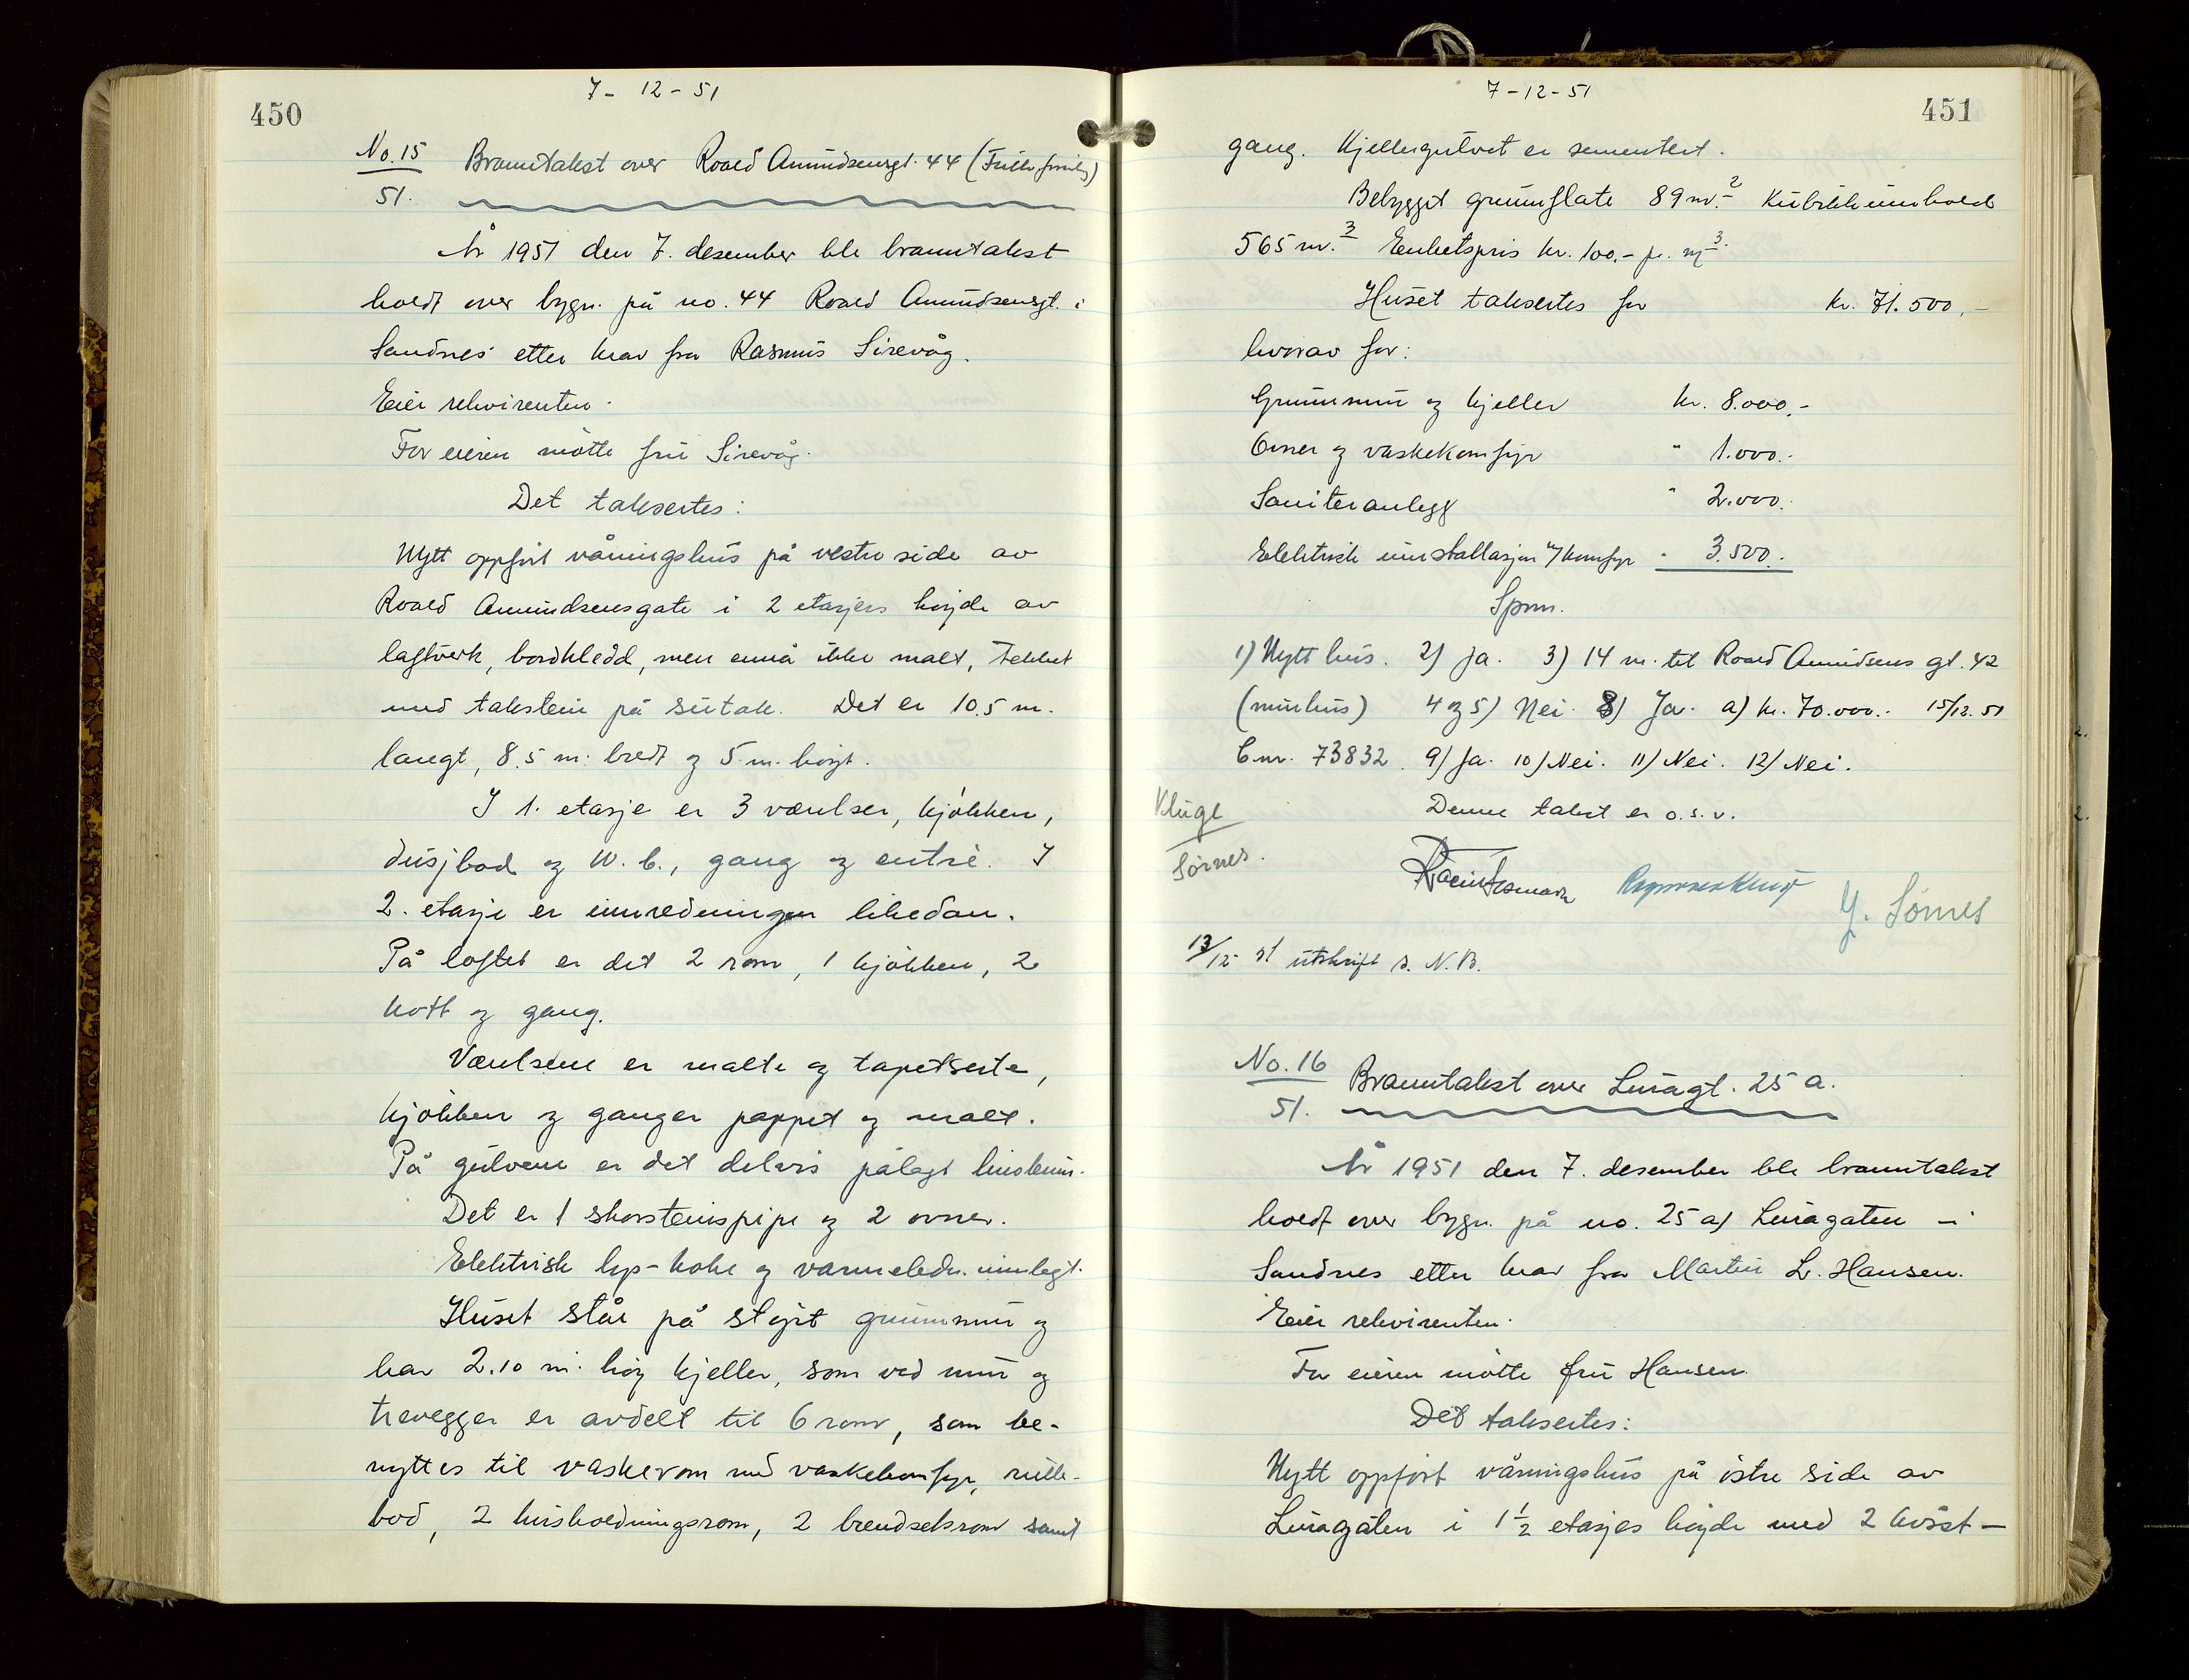 7-12-51
450
No. 15
51.
Branntakst over Roald Amundsensgt. 44
År 1951 den 7. desember ble branntakst
holdt over bygn. på no. 44 Roald Amundsensgt. i
Sandnes etter krav fra Rasmus Sirevåg.
Eier rekvirenten.
For eieren møtte fru Sirevåg.
Det taksertes:
Nytt oppført våningshus på vestre side av
Roald Amundsensgate i 2 etasjers høyde av
laftverk, bordkledd, men ennå ikke malt, tekket
med takstein på sutak. Det er 10.5 m.
langt, 8.5 m. bredt og 5 m. høyt.
I 1. etasje er 3 værelser, kjøkken,
dusjbad og W.C., gang og entrè. I
2. etasje er innredningen likedan.
På loftet er det 2 rom, 1 kjøkken, 2
kott og gang.
Værelsene er malte og tapetserte,
kjøkken og ganger pappet og malt.
På gulvene er det delvis pålagt linoleum.
Det er 1 skorsteinspipe og 2 ovner.
Elektrisk lys- koke og varmeledn. innlagt.
Huset står på støpt grunnmur og
har 2.10 m. høy kjeller, som ved mur og
trevegger er avdelt til 6 rom, som be-
nyttes til vaskerom med vaskekomfyr, rulle-
bod, 2 husholdningsrom, 2 brendselsrom samt
7-12-51
451
gang. Kjellergulvet er sementert.
Bebygget grunnflate 89 m.² Kubikkinnhold
565 m.³ Enhetspris kr. 100.- pr. m³.
Huset taksertes for kr. 71.500,-
hvorav for:
Grunnmur og kjeller kr. 8.000.-
Ovner og vaskekomfyr " 1.000.-
Saniteranlegg " 2.000.
Elektrisk innstallasjon m/komfyr " 3.500.-
Spm.
1) Nytt hus. 2) Ja. 3) 14 m. til Roald Amundsens gt. 42
(murhus) 4 og 5) Nei. 8) Ja. a) kr. 70.000.- 15/12.51
C nr. 73832. 9) Ja. 10) Nei. 11) Nei. 12) Nei.
Denne takst er o.s.v.
Kluge
Sørnes.
Y. Sørnes
13/12 51 utskrift s. N.B.
No. 16
51.
Branntakst over Luragt. 25 a.
År 1951 den 7. desember ble branntakst
holdt over bygn. på no. 25 a) Luragaten - i
Sandnes etter krav fra Martin L. Hansen.
Eier rekvirenten.
For eieren møtte fru Hansen.
Det taksertes:
Nytt oppført våningshus på østre side av
Luragaten i 1 1/2 etasjes høyde med 2 kvist-